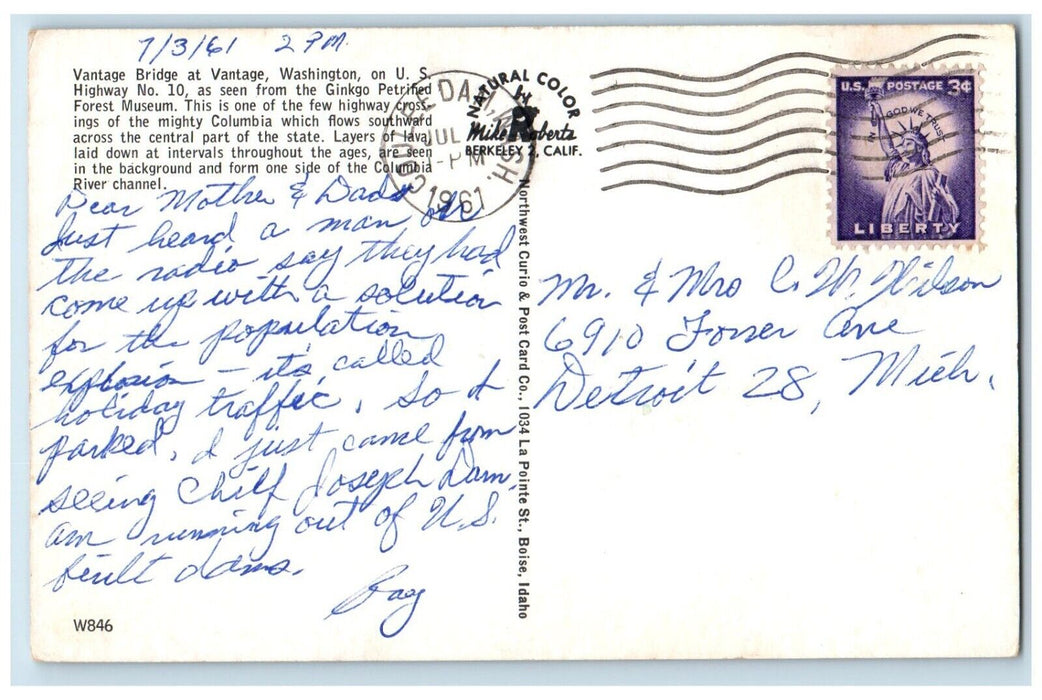 7/3/61 2 PM.
Vantage Bridge at Vantage, Washington, on U. S.
Highway No. 10, as seen from the Ginkgo Petrified
Forest Museum. This is one of the few highway cross-
ings of the mighty Columbia which flows southward
across the central part of the state. Layers of lava,
laid down at intervals throughout the ages, are seen
in the background and form one side of the Columbia
River channel.
Dear Mother & Dad
Just heard a man on
the radio say they had
come up with a solution
for the population
explosion – it's called
holiday traffic. So I
parked. I just came from
seeing Chief Joseph Dam,
am running out of U.S.
built dams.
Ray
W846
NATURAL COLOR
Mike Roberts
BERKELEY 2, CALIF.
COULEE DAM, WASH.
JUL
PM
1961
Northwest Curio & Post Card Co., 1034 La Pointe St., Boise, Idaho
U.S. POSTAGE 3¢
IN GOD WE TRUST
LIBERTY
Mr. & Mrs C. W. Wilson
6910 Ave
Detroit 28, Mich.